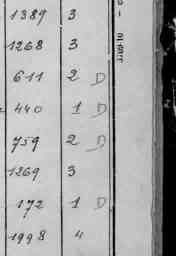 1389 3
1268 3
611 2 D
440 1 D
759 2 D
1269 3
172 1 D
1998 4